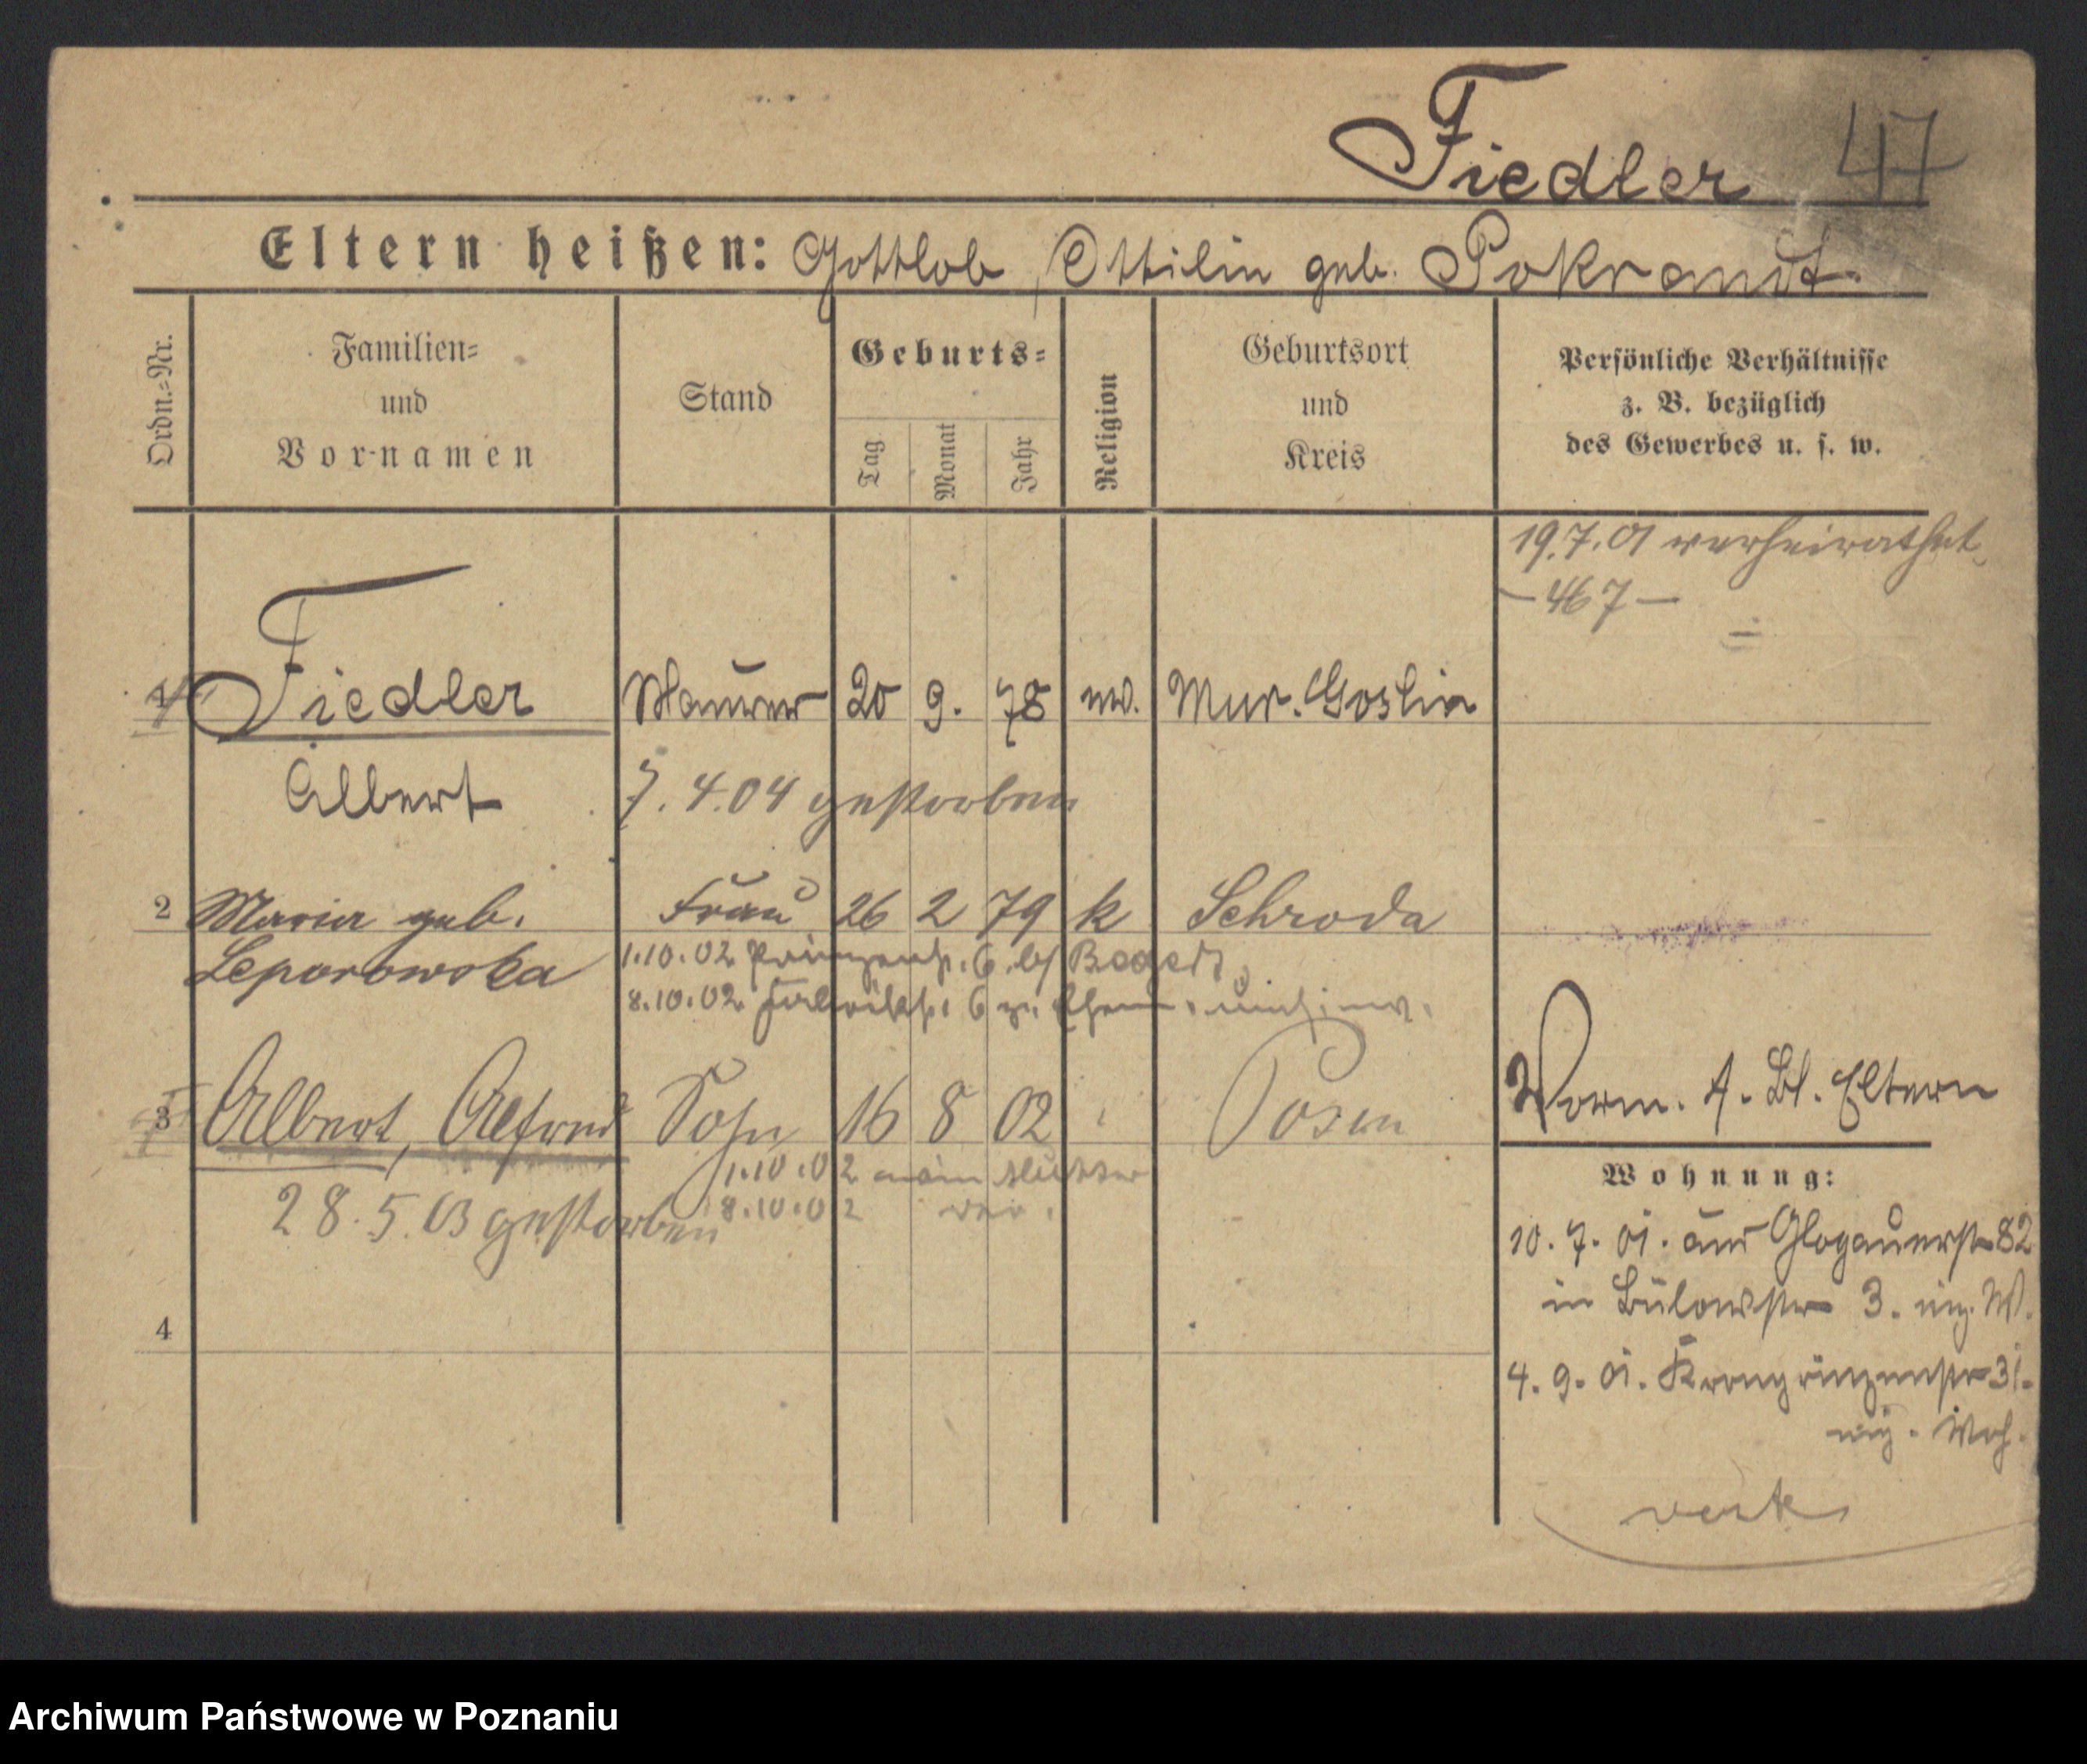 Fiedler 47
Eltern heißen: Gottlob, Ottilie geb. Pokrandt.
Ordn.=Nr.
Familien=
und
Vornamen
Stand
Geburts=
Tag
Monat
Jahr
Religion
Geburtsort
und
Kreis
Persönliche Verhältnisse
z. B. bezüglich
des Gewerbes u. s. w.
19.7.01 verheirathet
— 467 —
1 Fiedler Maurer 20 9. 78 ev. Mur. Goslin
Albert 7.4.04 gestorben
2 Maria geb. Frau 26 2 79 k Schroda
Leporowska
1.10.02 Prinzenstr. 6 b/
8.10.02 6 z.
3 Albert, Alfred Sohn 16 8 02 Posen
1.10.02 Mutter
8.10.02
28.5.03 gestorben
4
Vorm. A. Bl. Eltern
Wohnung:
10.7.01. aus Glogauerstr 82
in Bülowstr 3. W.
4.9.01. Kronprinzenstr 31.
verte
Archiwum Państwowe w Poznaniu